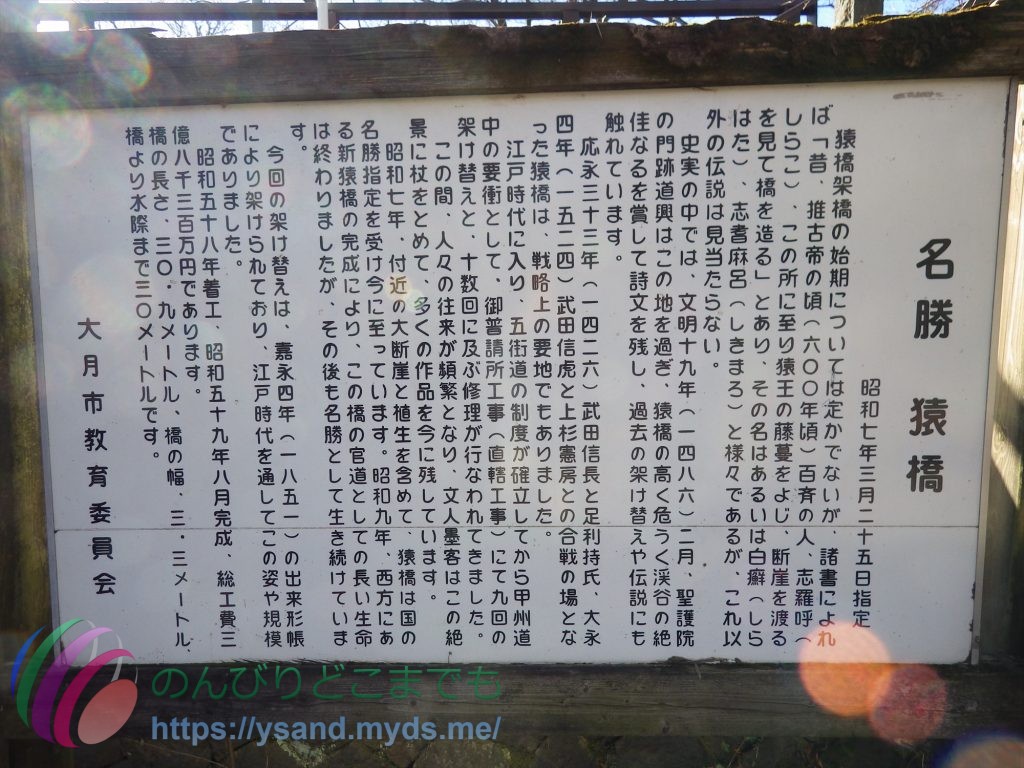 名勝 猿橋
昭和七年三月二十五日指定
猿橋架橋の始期については定かでないが、諸書によれ
ば「昔、推古帝の頃(六〇〇年頃)百斉の人、志羅呼(
しらこ)、この所に至り猿王の藤蔓をよじ、断崖を渡る
を見て橋を造る」とあり、その名はあるいは白癬(しら
はた)、志耆麻呂(しきまろ)と様々であるが、これ以
外の伝説は見当たらない。
史実の中では、文明十九年(一四八六)二月、聖護院
の門跡道興はこの地を過ぎ、猿橋の高く危うく渓谷の絶
佳なるを賞して詩文を残し、過去の架け替えや伝説にも
触れています。
応永三十三年(一四二六)武田信長と足利持氏、大永
四年(一五二四)武田信虎と上杉憲房との合戦の場とな
った猿橋は、戦略上の要地でもありました。
江戸時代に入り、五街道の制度が確立してから甲州道
中の要衝として、御普請所工事(直轄工事)にて九回の
架け替えと、十数回に及ぶ修理が行なわれてきました。
この間、人々の往来が頻繁となり、文人墨客はこの絶
景に杖をとめて、多くの作品を今に残しています。
昭和七年、付近の大断崖と植生を含めて、猿橋は国の
名勝指定を受け今に至っています。昭和九年、西方にあ
る新猿橋の完成により、この橋の官道としての長い生命
は終わりましたが、その後も名勝として生き続けていま
す。
今回の架け替えは、嘉永四年(一八五一)の出来形帳
により架けられており、江戸時代を通してこの姿や規模
でありました。
昭和五十八年着工、昭和五十九年八月完成、総工費三
億八千三百万円であります。
橋の長さ、三〇・九メートル、橋の幅、三・三メートル、
橋より水際まで三〇メートルです。
大月市教育委員会
のんびりどこまでも
https://ysand.myds.me/